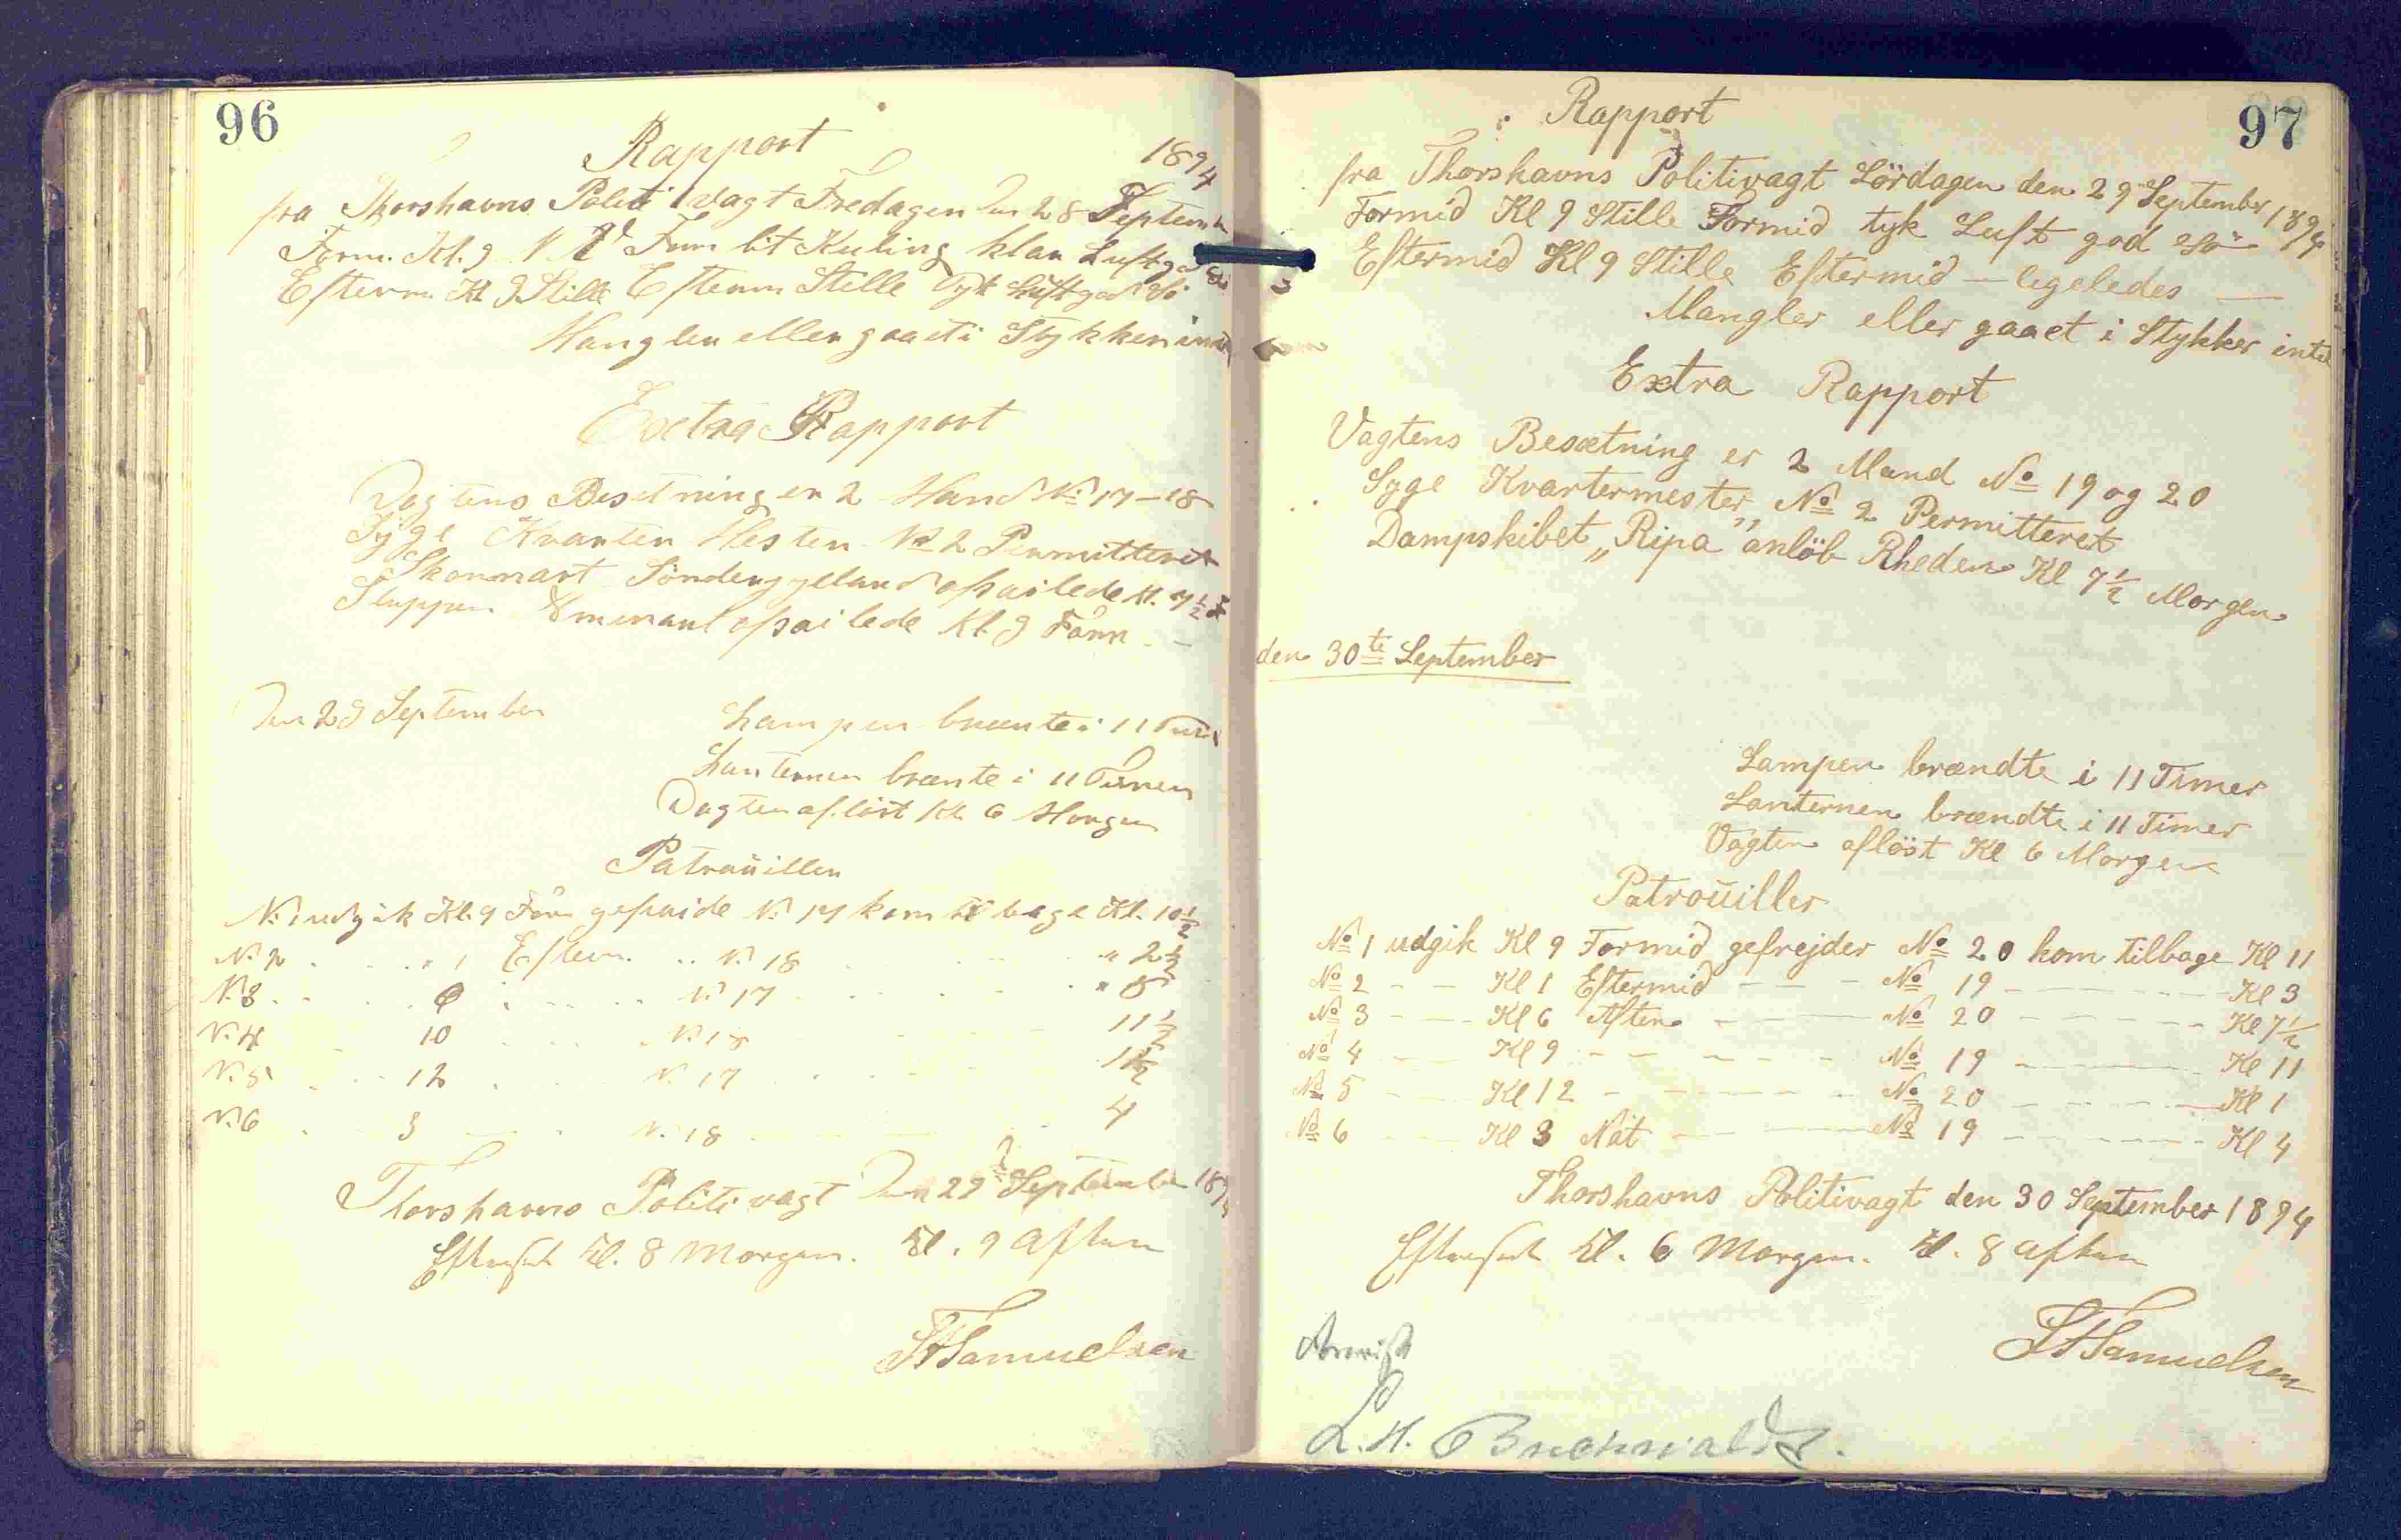 96
Rapport
1894
fra Thorshavns Politivagt Fredagen Den 28 Septemb
Form. Kl. 9 N V Frm lit Kuling klar Luft god
Efterm Kl 9 Stille Efterm Stille Tyk Luft god Sö
Mangler eller gaaet i Stykker int
Extra Rapport
Vagtens Besetning er 2 Mand No 17-18
Syge Kvarter Mester No 2 Permitteret
Skonnart Sönderjylland afsailede Kl. 7½
Sluppen Emenant afsailede Kl. 9 Form
Den 29 September
Lampen brænte i 11 Timer
Lanternen brænte i 11 Timer
Vagten aflöst Kl. 6 Morgen
Patroüiller
No 1 udgik Kl. 9 Form gefraide No 17 kom tilbage Kl. 10½
No 2 " 1 Efterm. No 18 " 2½
No 3 6 No 17 " 8
No 4 10 No 18 11½
No 5 12 No 17 1½
No 6 3 No 18 4
Thorshavns Politivagt Den 29 September 189
Efterset Kl. 8 Morgen. Kl. 9 Aften
Samuelsen
97
Rapport
fra Thorshavns Politivagt Lördagen den 29 September 1894
Formid Kl 9 Stille Formid tyk Luft god Sö
Eftermid Kl 9 Stille Eftermid — legeledes —
Mangler eller gaaet i Stykker intet
Extra Rapport
Vagtens Besætning er 2 Mand No 19 og 20
Syge Kvartermester No 2 Permitteret
Dampskibet „Ripa” anlöb Rheden Kl 7½ Morgen
den 30te September
Lampen brændte i 11 Timer
Lanternen brændte i 11 Timer
Vagten aflöst Kl 6 Morgen
Patroüiller
No 1 udgik Kl 9 Formid gefrejder No 20 kom tilbage Kl 11
No 2 - - Kl 1 Eftermid - - - No 19 - - - Kl 3
No 3 - - Kl 6 Aften - - No 20 - - - Kl 7½
No 4 - - Kl 9 - - - - No 19 - - - Kl 11
No 5 - - Kl 12 - - - - No 20 - - - Kl 1
No 6 - - Kl 3 Nat - - No 19 - - - Kl 4
Thorshavns Politivagt den 30 September 1894
Efterset Kl. 6 Morgen. Kl. 8 Aften
Samuelsen
L. H. Buchwaldt.